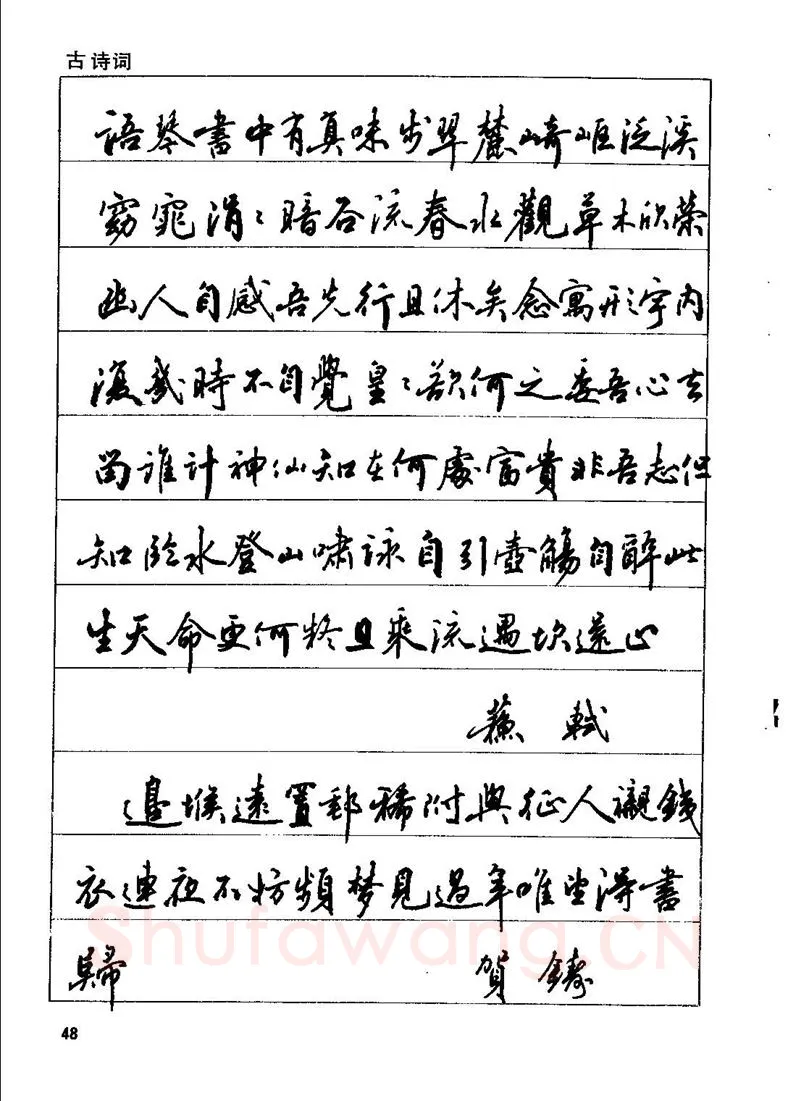 古诗词
語琴書中有真味步翠麓崎嶇泛溪
窈窕涓〻暗谷流春水觀草木欣榮
幽人自感吾生行且休矣念寓形宇内
復幾時不自覺皇〻欲何之委吾心去
留誰計神仙知在何處富貴非吾志但
知臨水登山嘯詠自引壺觴自醉此
生天命更何疑且乘流遇坎還止
蘇軾
邊堠遠置郵稀附與征人襯鐵
衣連夜不妨頻夢見過年唯望得書
歸
賀鑄
Shufawang.CN
48